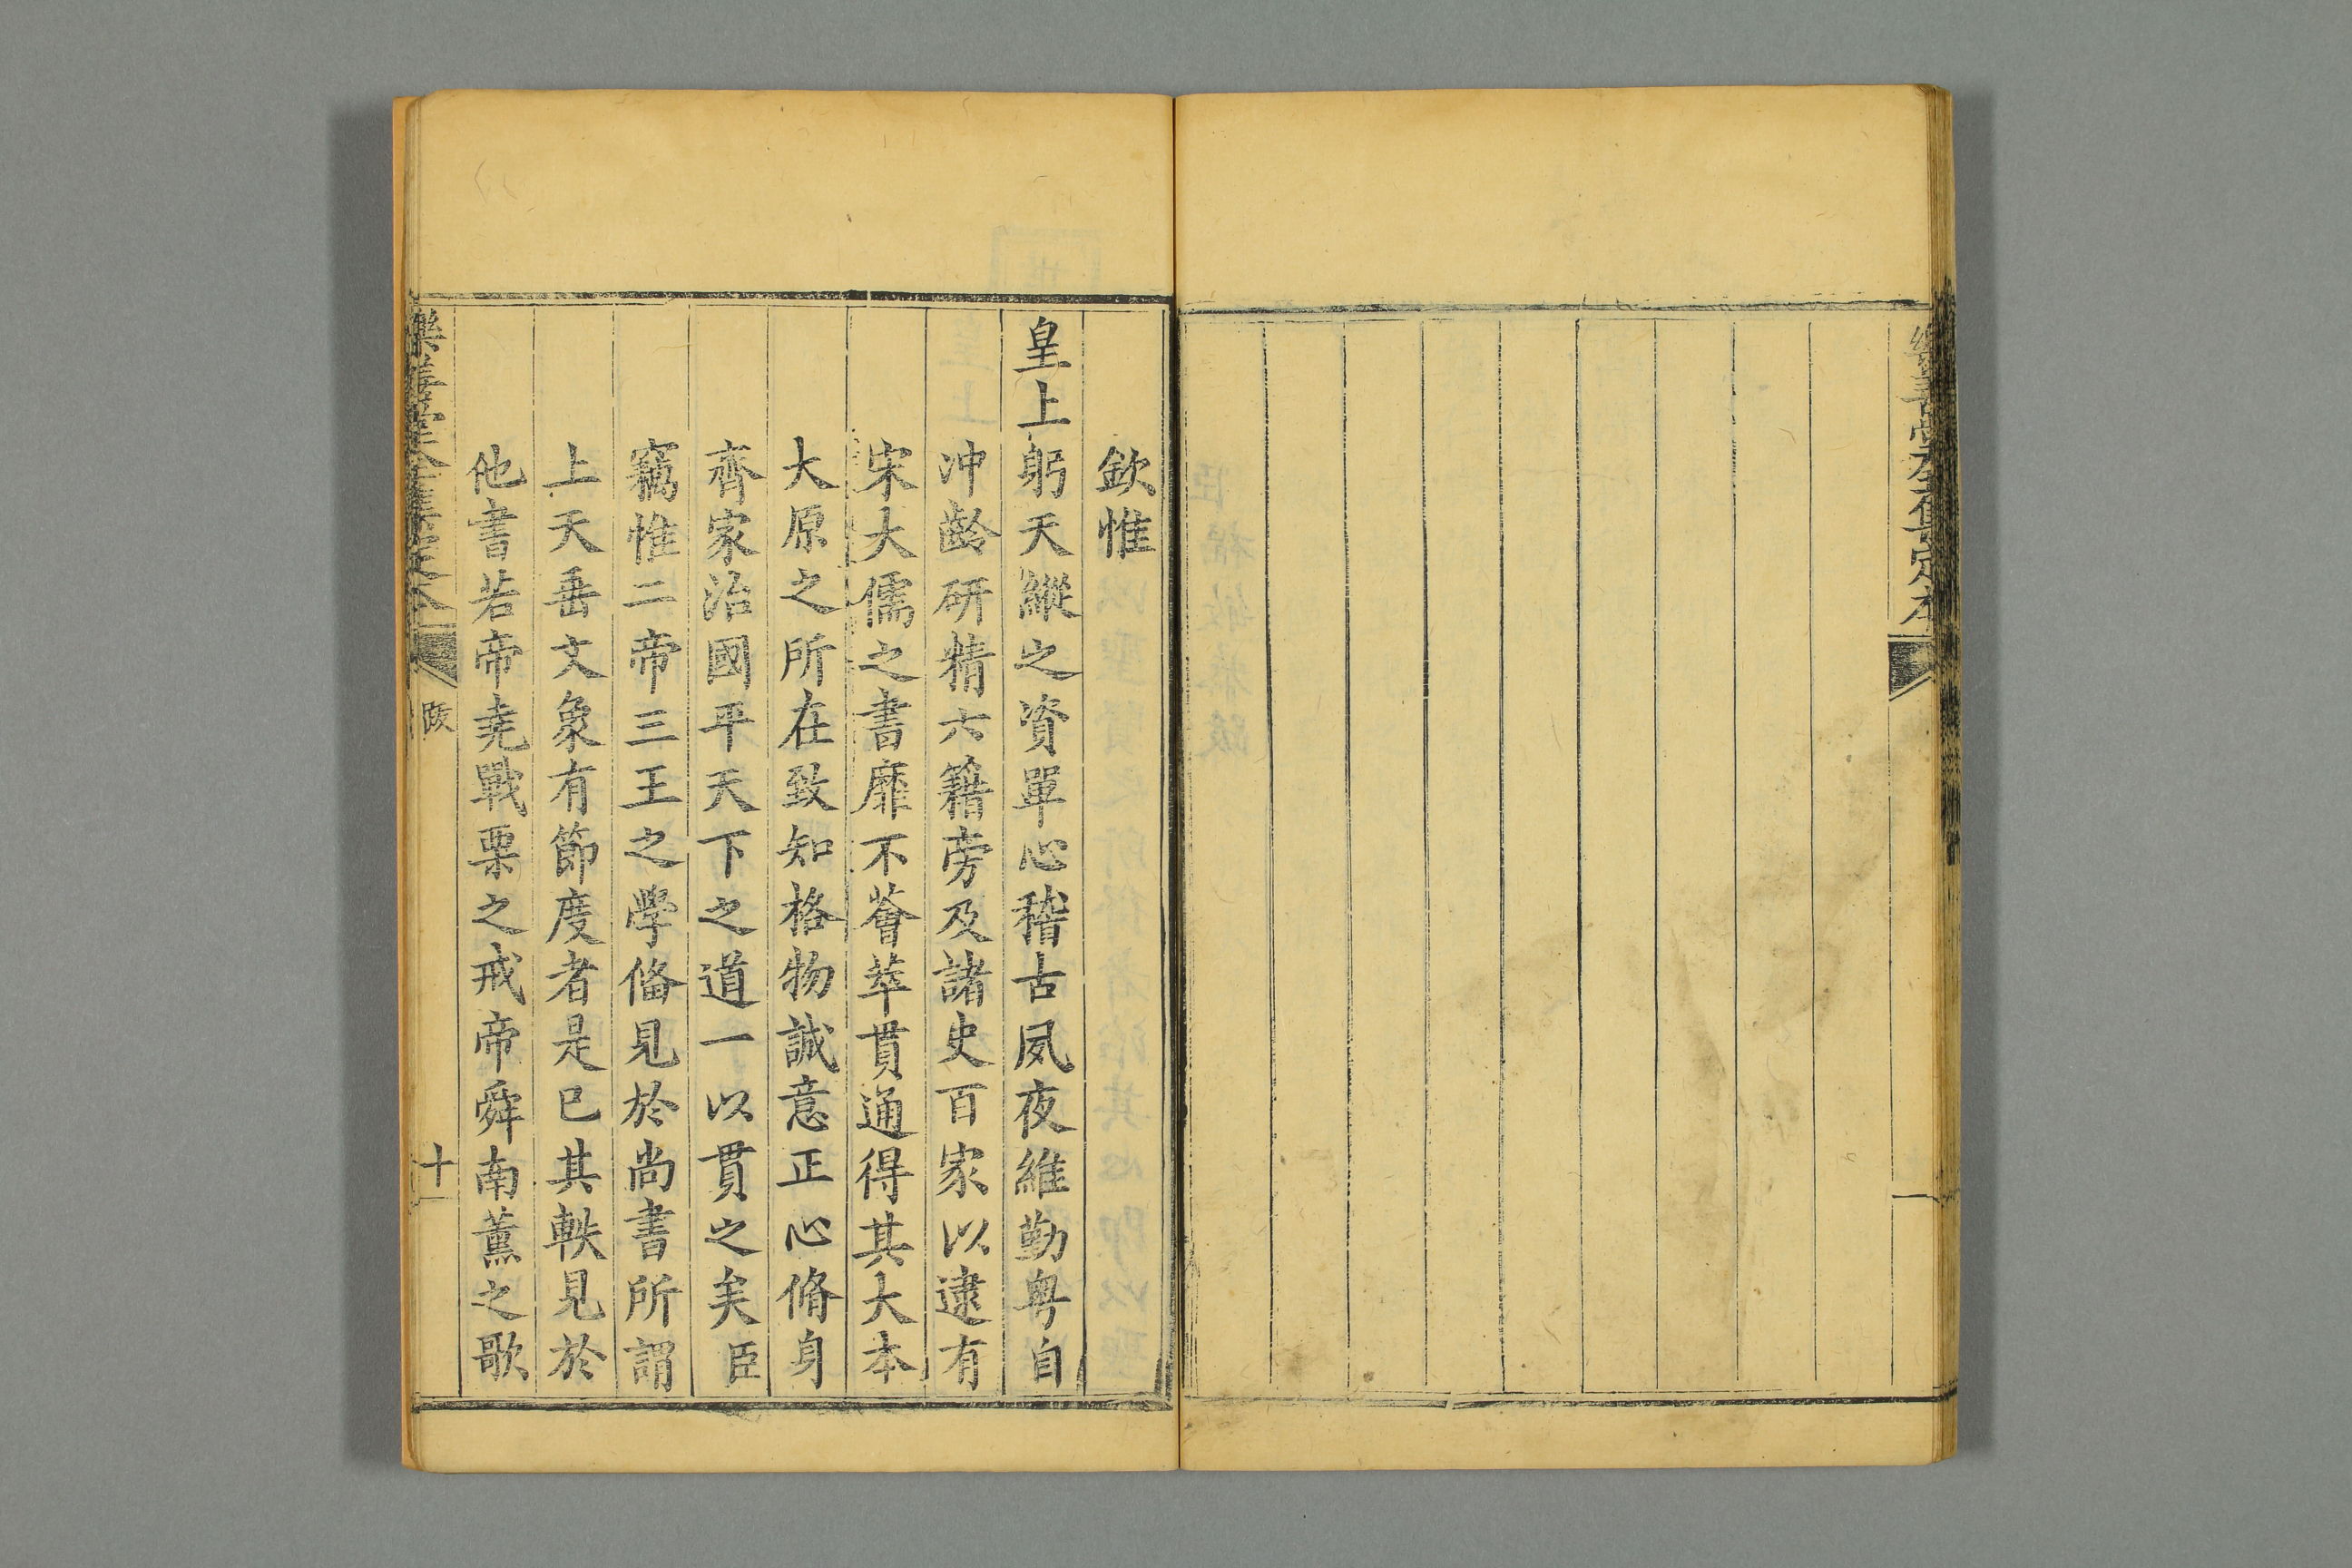 欽惟
皇上躬天縱之資單心稽古夙夜維勤粵自
冲齡研精六籍旁及諸史百家以逮有
宋大儒之書靡不薈萃貫通得其大本
大原之所在致知格物誠意正心脩身
齊家治國平天下之道一以貫之矣臣
竊惟二帝三王之學俻見於尚書所謂
上天垂文象有節度者是已其軼見於
他書若帝堯戰栗之戒帝舜南薰之歌
跋
十